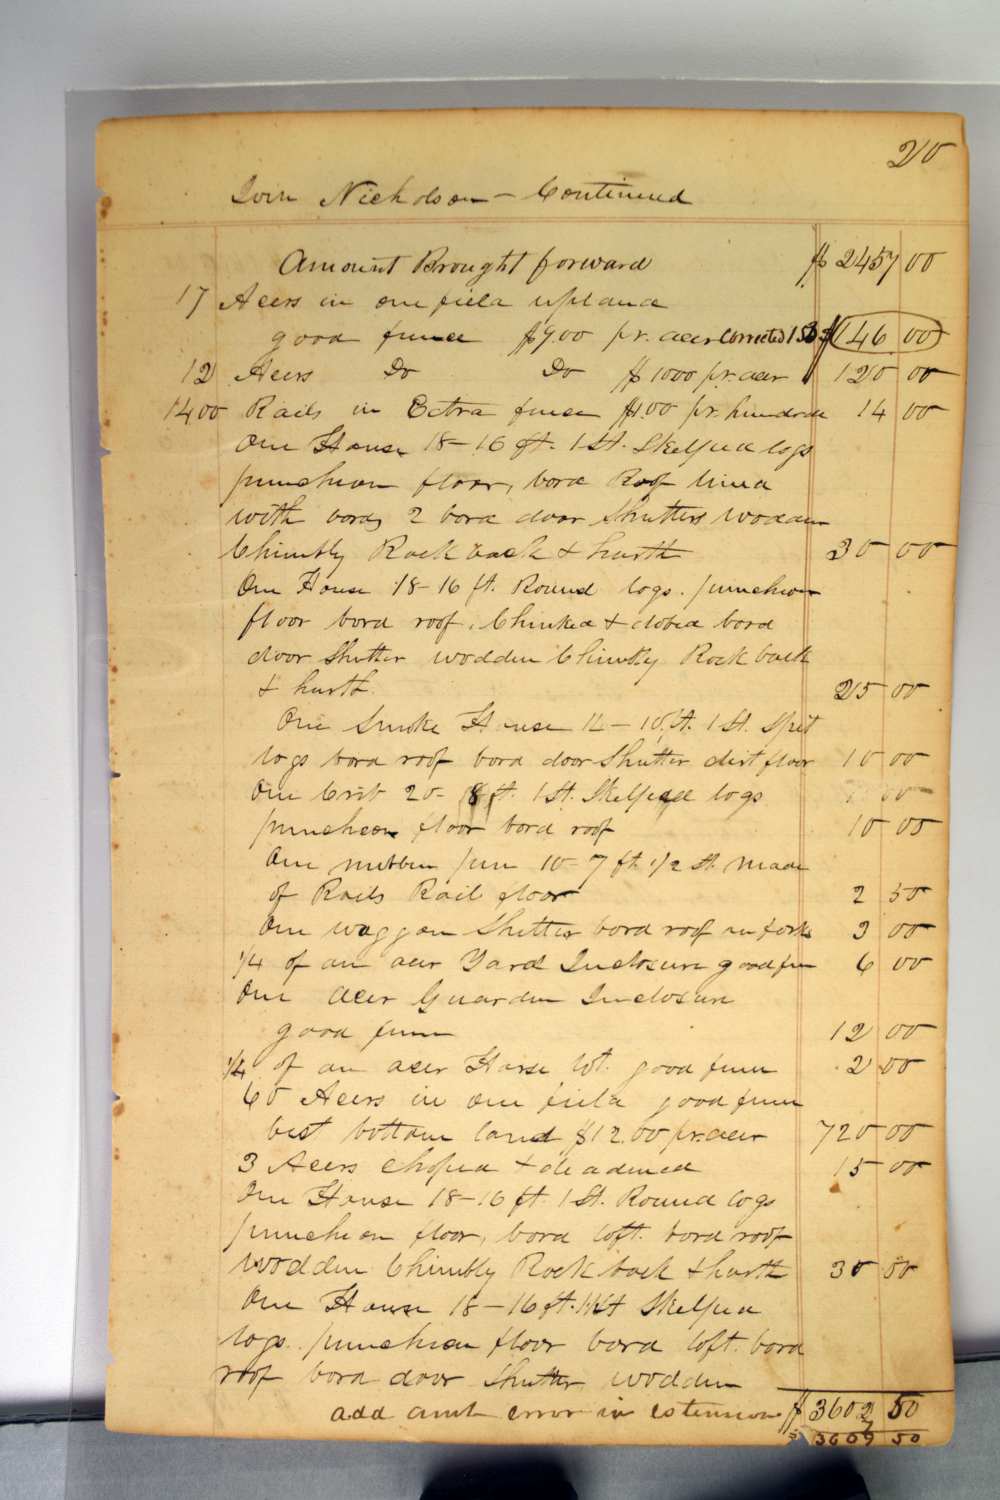 20
Iven Nicholson - Continued
Amount Brought forward $ 2457 00
17 Acers in one field upland
good fence $9.00 pr. acer Corrected 153 $146 00
12 Acers Do Do $ 1000 pr. acer 120 00
1400 Rails in Extra fence $1.00 pr. hundrde 14 00
One House 18-16 ft. 1 St. Skelped logs
puncheon floor, bord Roof lined
with bords 2 bord door Shutters wodden
Chimbly Rock back & harth 30 00
One House 18-16 ft. Round logs. puncheon
floor bord roof. Chinked & dobed bord
door Shutter wodden Chimbly Rock back
& harth. 25 00
One Smoke House 14-10 ft. 1 St. Split
logs bord roof bord door Shutter dirt floor 10 00
One Crib 20-8 ft. 1 St. Skelped logs
puncheon floor bord roof 10 00
One nubben pen 10-7 ft. 1/2 St. made
of Rails Rail floor 2 50
One waggon Shelter bord roof on forks 3 00
1/4 of an acer Yard Inclosure good fen 6 00
One acer Guarden Inclosure
good fenn 12 00
1/4 of an acer Horse lot. good fenn 2 00
60 Acers in one field good fenn
best bottom land $12.00 pr. acer 720 00
3 Acers choped & deadened 15 00
One House 18-16 ft. 1 St. Round logs
puncheon floor, bord loft. bord roof
wodden Chimbly Rock back & harth 30 50
One House 18-16 ft. St Skelped
logs. puncheon floor bord loft. bord
roof bord door Shutter wodden
add amt error in extension $ 3602 50
7
$ 3609 50